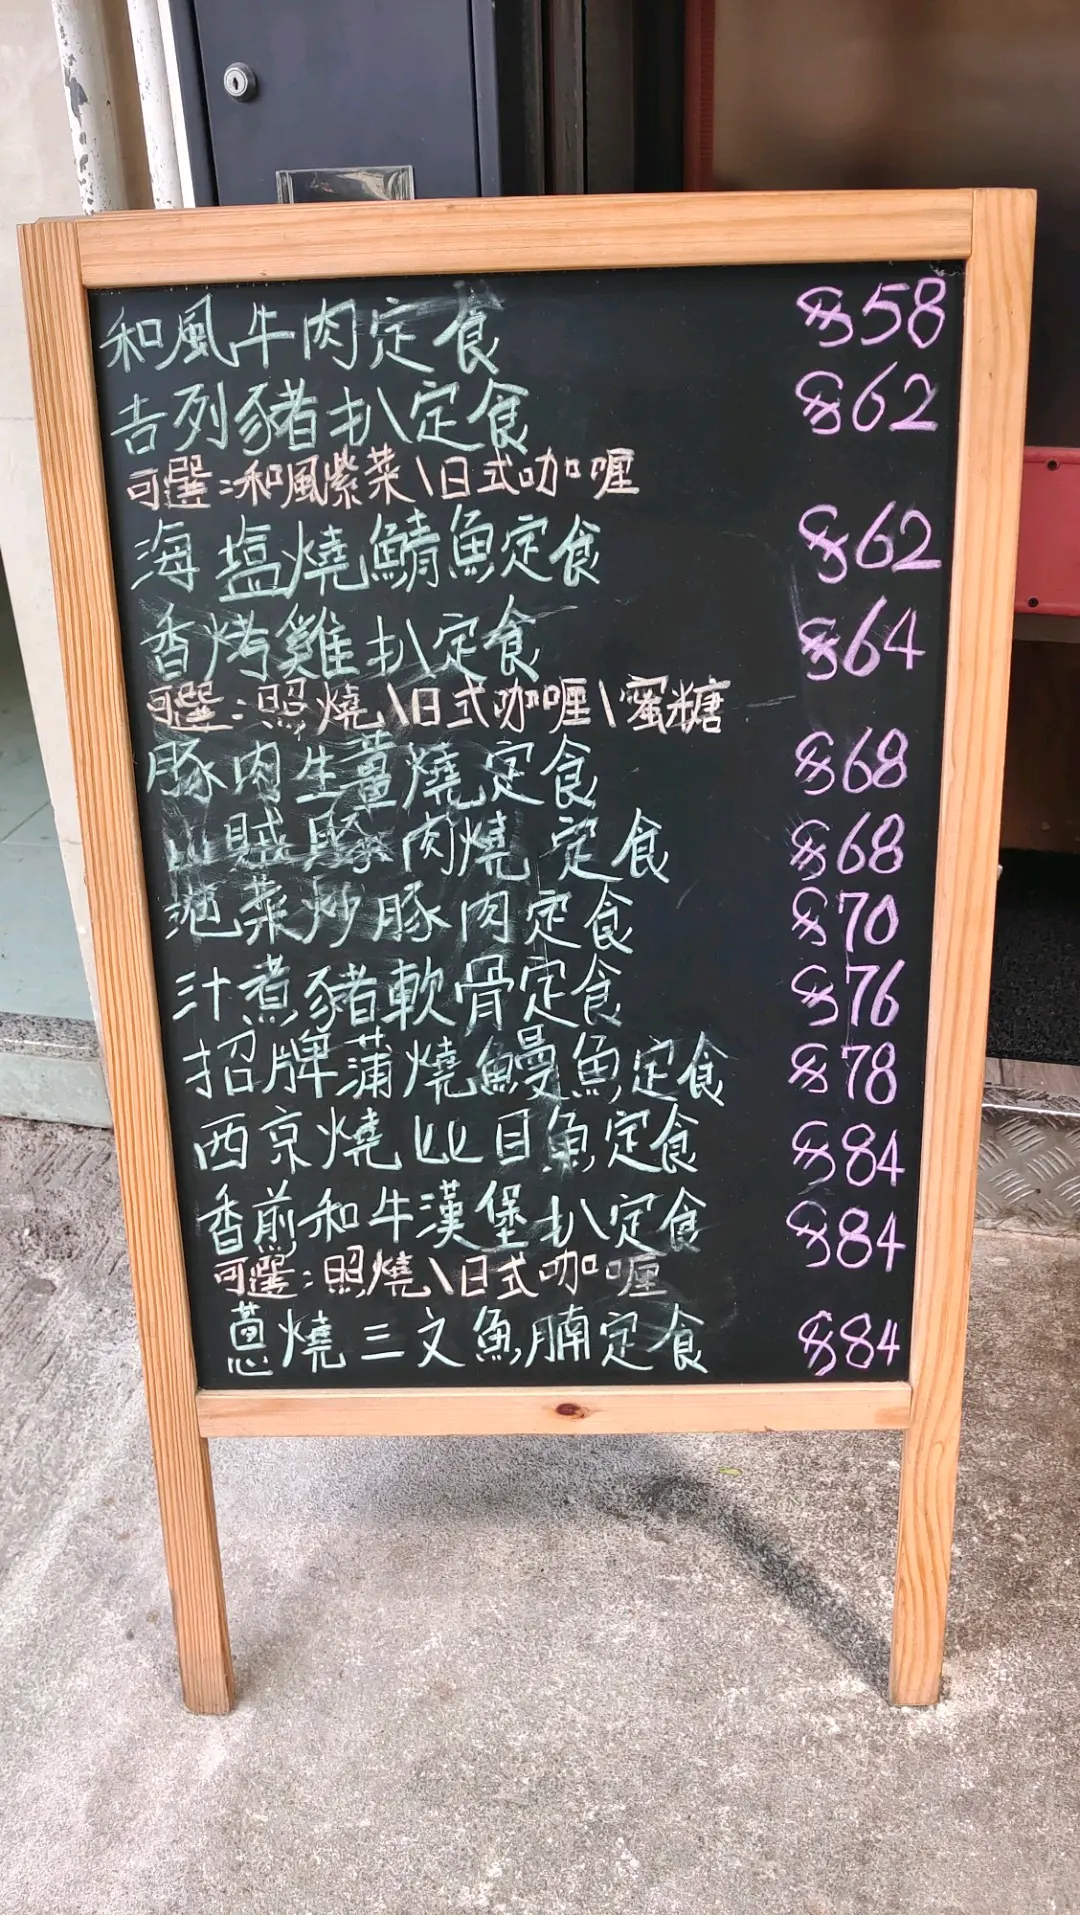 和風牛肉定食 $58
吉列豬扒定食 $62
可選:和風紫菜\日式咖喱
海塩燒鯖魚定食 $62
香烤雞扒定食 $64
可選:照燒\日式咖喱\蜜糖
豚肉生薑燒定食 $68
山賊豚肉燒定食 $68
泡菜炒豚肉定食 $70
汁煮豬軟骨定食 $76
招牌蒲燒鰻魚定食 $78
西京燒比目魚定食 $84
香煎和牛漢堡扒定食 $84
可選:照燒\日式咖喱
蔥燒三文魚腩定食 $84